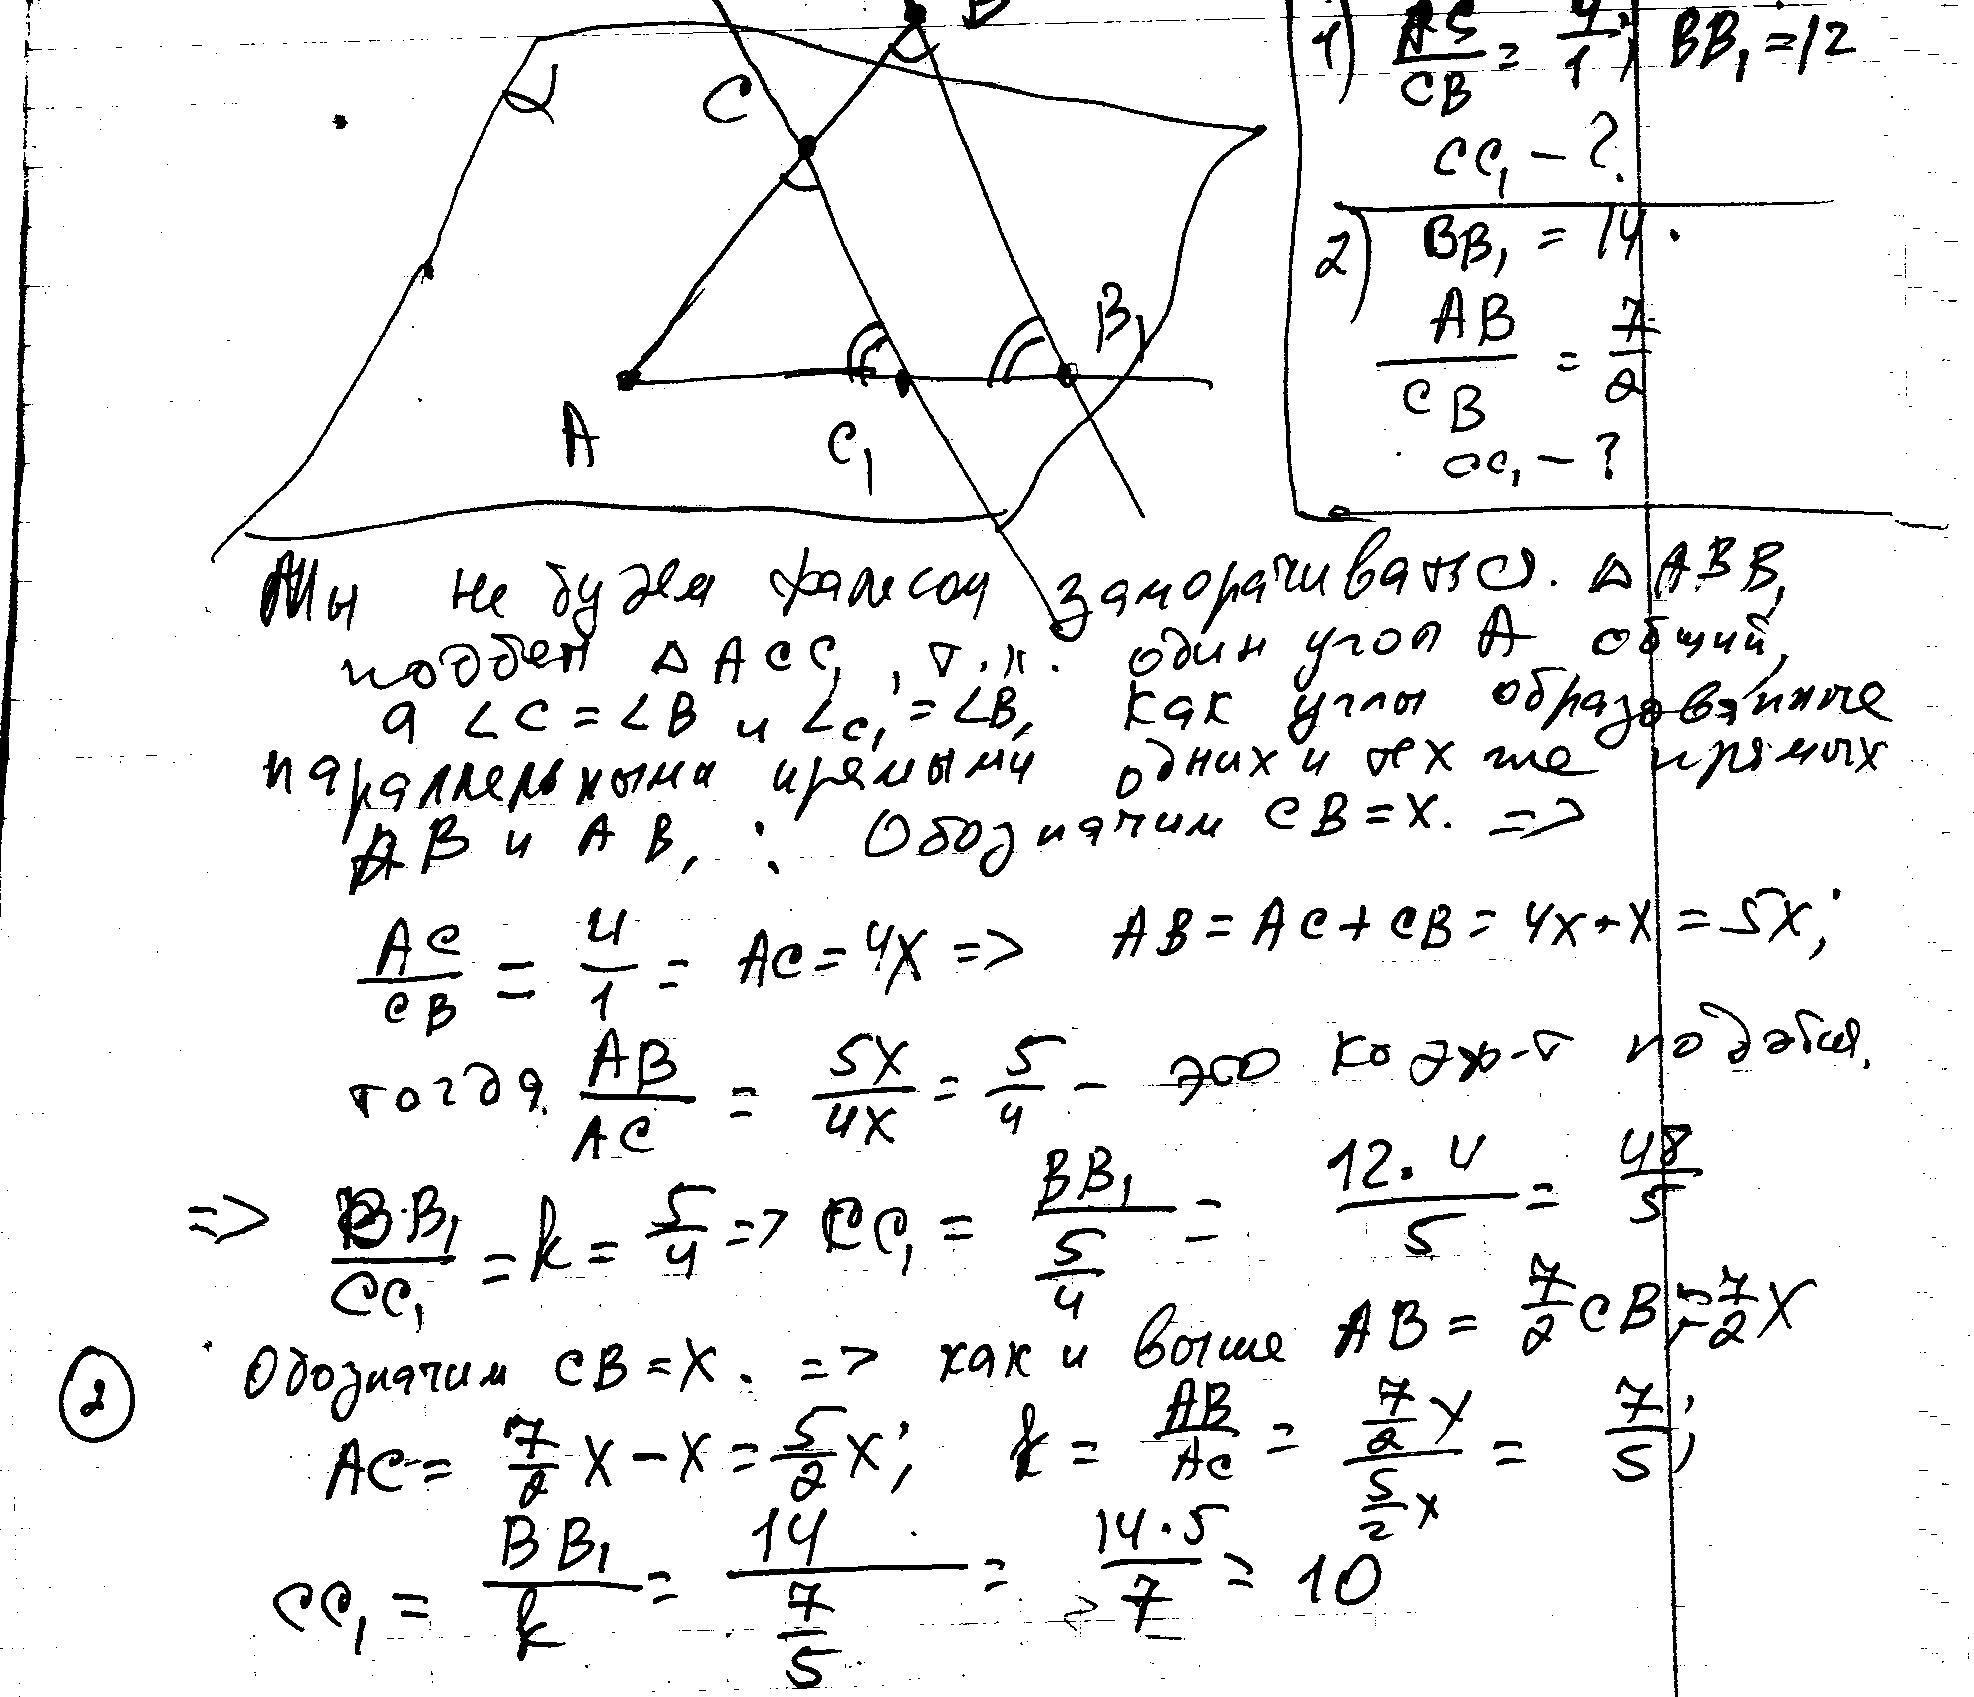 B
α
C
A
C₁
B₁
1) AC/CB = 4/1; BB₁ = 12
CC₁ – ?
2) BB₁ = 14.
AB/CB = 7/2
CC₁ – ?
Мы не будем Фалесом заморачиваться. △ABB₁
подобен △ACC₁, т.к. один угол A общий,
а ∠C = ∠B и ∠C₁ = ∠B₁ как углы образованные
параллельными прямыми одних и тех же прямых
AB и AB₁: Обозначим CB = X. =>
AC/CB = 4/1 = AC = 4X => AB = AC + CB = 4X + X = 5X;
тогда AB/AC = 5X/4X = 5/4 – это коэф-т подобия.
=> BB₁/CC₁ = k = 5/4 => CC₁ = BB₁/(5/4) = 12·4/5 = 48/5
2 Обозначим CB = X. => как и выше AB = 7/2 CB = 7/2 X
AC = 7/2 X – X = 5/2 X; k = AB/AC = (7/2 X)/(5/2 X) = 7/5;
CC₁ = BB₁/k = 14/(7/5) = 14·5/7 = 10